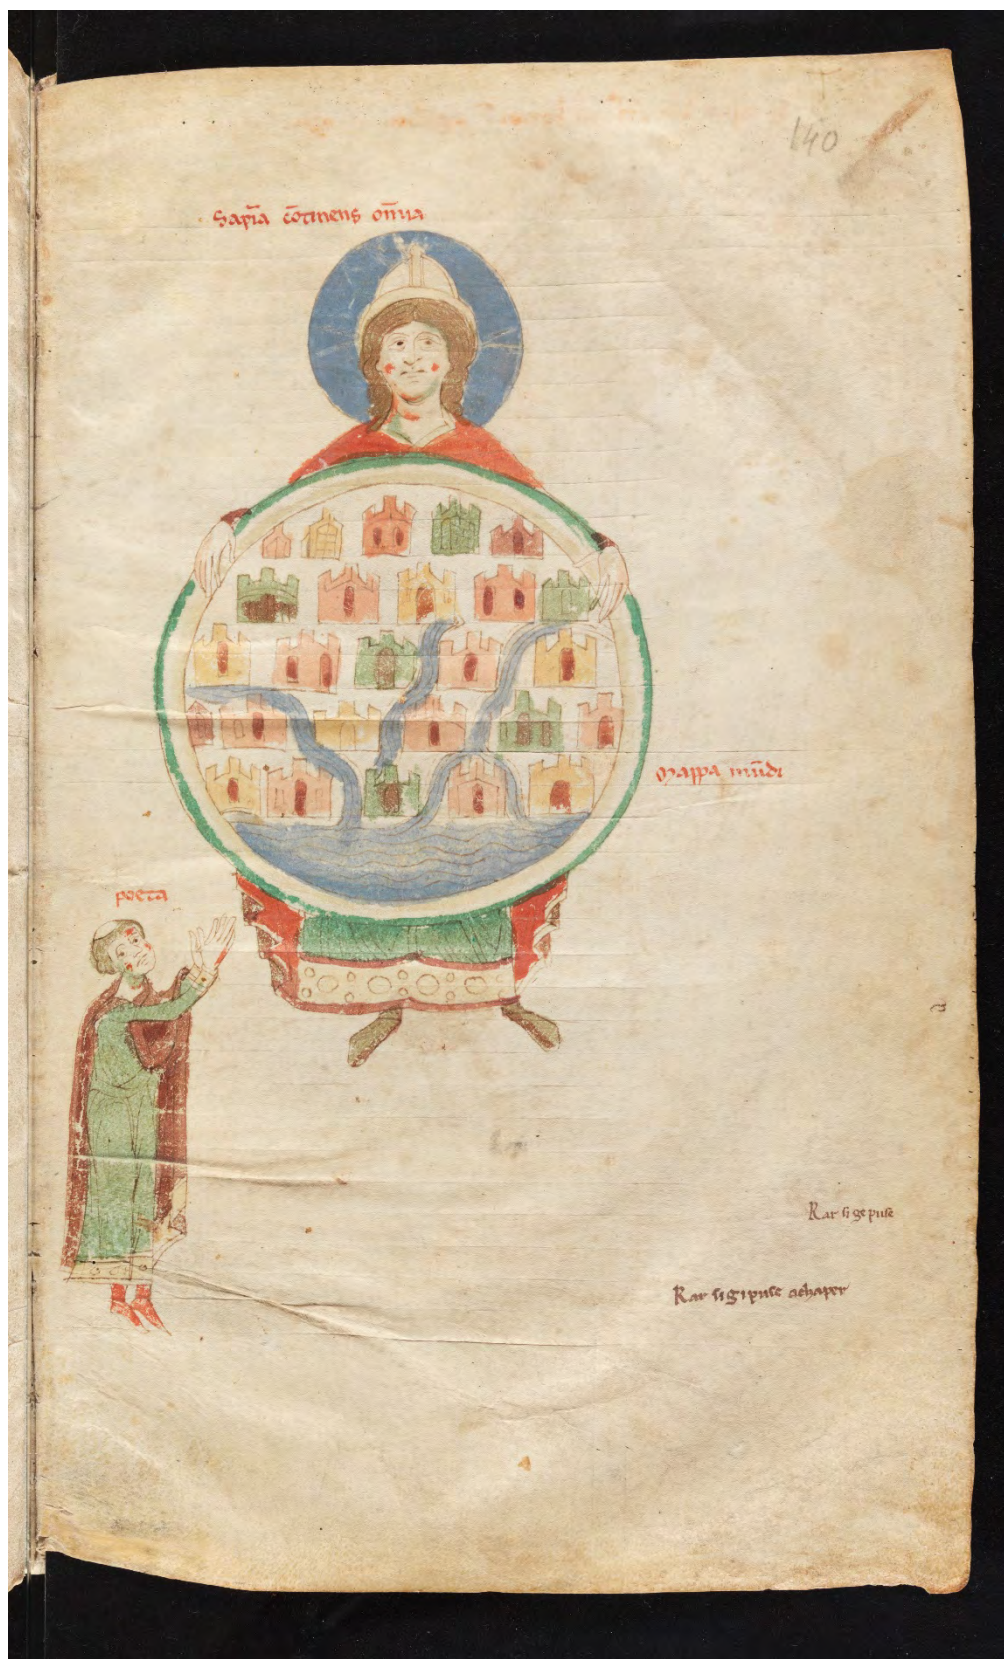 140
Sapi̅a co̅tinens om̅ia
Mappa mu̅di
poeta
Kar si ge puse
Kar sigipuse achaper